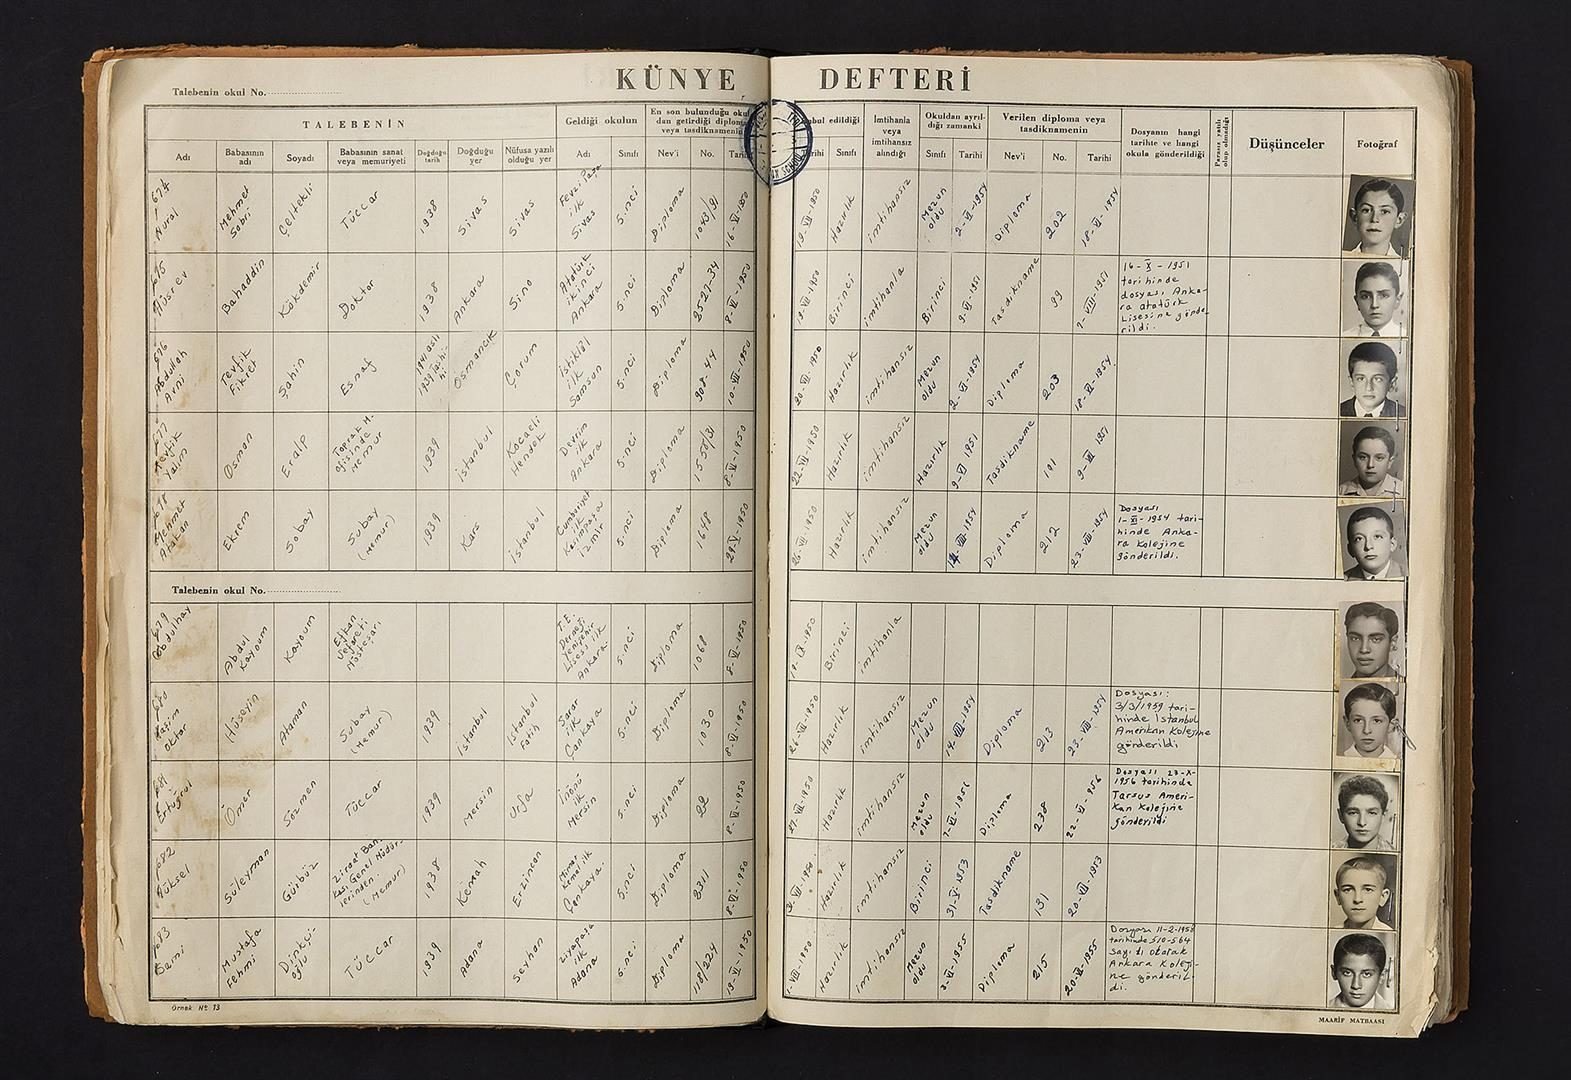 KÜNYE DEFTERİ
Talebenin okul No.
TALEBENİN
Geldiği okulun
En son bulunduğu oku
dan getirdiği diploma
veya tasdiknamenin
bul edildiği
İmtihanla
veya
imtihansız
alındığı
Okuldan ayrıl-
dığı zamanki
Verilen diploma veya
tasdiknamenin
Dosyanın hangi
tarihte ve hangi
okula gönderildiği
Parasız yatılı
olup olmadığı
Düşünceler
Fotoğraf
Adı
Babasının
adı
Soyadı
Babasının sanat
veya memuriyeti
Doğduğu
tarih
Doğduğu
yer
Nüfusa yazılı
olduğu yer
Adı
Sınıfı
Nev'i
No.
Tarihi
Sınıfı
Sınıfı
Tarihi
Nev'i
No.
Tarihi
674
Mehmet
Sabri
Çeltekli
Tüccar
1938
Sivas
Sivas
Fevzi Paşa
ilk
Sivas
5.nci
Diploma
1043/91
16-VI-1950
19-VII-1950
Hazırlık
imtihansız
Mezun
oldu
2-VI-1954
Diploma
202
18-VI-1954
675
Bahaddin
Kökdemir
Doktor
1938
Ankara
Sino
Atatürk
ikinci
Ankara
5.nci
Diploma
8-VI-1950
Birinci
imtihanla
Birinci
9-VI-1951
Tasdikname
99
7-VIII-1951
16-X-1951
tarihinde
dosyası Anka-
ra atatürk
Lisesine gönde
rildi.
676
Abdullah
Avni
Tevfik
Fikret
Şahin
Esnaf
Osmancık
Çorum
İstiklâl
ilk
Samsun
5.nci
Diploma
908-44
10-VII-1950
20-VII-1950
Hazırlık
imtihansız
Mezun
oldu
2-VI-1954
Diploma
203
18-VI-1954
677
Tevfik
Yalım
Osman
Eralp
Toprak M.
ofisinde
Memur
1939
İstanbul
Kocaeli
Hendek
Devrim
ilk
Ankara
5.nci
Diploma
1550/31
8-VI-1950
22-VII-1950
Hazırlık
imtihansız
Hazırlık
9-VI-1951
Tasdikname
101
9-VII-1951
678
Mehmet
Atakan
Ekrem
Sobay
Subay
(Memur)
1939
Kars
İstanbul
Cumhuriyet
ilk
İzmir
5.nci
Diploma
1648
29-V-1950
26-VII-1950
Hazırlık
imtihansız
Mezun
oldu
14-VIII-1954
Diploma
212
23-VIII-1954
Dosyası
1-XI-1954 tari-
hinde Anka-
ra Kolejine
gönderildi.
Talebenin okul No.
679
Abdulhay
Abdul
Kayoum
Kayoum
Efkan
sefareti
Müsteşarı
T.E.
Derneği
Yenişehir
Lisesi ilk
Ankara
5.nci
Diploma
1068
8-VI-1950
Birinci
imtihanla
680
Kasım
Oktar
Hüseyin
Ataman
Subay
(Memur)
1939
İstanbul
İstanbul
Fatih
Sarar
ilk
Çankaya
5.nci
Diploma
1030
8-VI-1950
26-VII-1950
Hazırlık
imtihansız
Mezun
oldu
14-VIII-1954
Diploma
213
23-VIII-1954
Dosyası:
3/3/1959 tari-
hinde İstanbul
Amerikan Kolejine
gönderildi
681
Ertuğrul
Ömer
Sözmen
Tüccar
1939
Mersin
Urfa
İnönü
ilk
Mersin
5.nci
Diploma
22
8-VI-1950
27-VII-1950
Hazırlık
imtihansız
Mezun
oldu
7-VI-1956
Diploma
238
22-VI-1956
Dosyası 23-X-
1956 tarihinde
Tarsus Ameri-
kan kolejine
gönderildi
682
Yüksel
Süleyman
Gürbüz
Ziraat Ban-
kası Genel Müdür-
lerinden
(Memur)
1938
Kemah
Erzincan
Mimar
Kemal ilk
Çankaya
5.nci
Diploma
8311
8-VI-1950
31-VII-1950
Hazırlık
imtihansız
Birinci
31-V-1953
Tasdikname
131
20-VII-1953
683
Sami
Mustafa
Fehmi
Dinkçi-
oğlu
Tüccar
1939
Adana
Seyhan
Ziyapaşa
ilk
Adana
5.nci
Diploma
118/224
13-VI-1950
Hazırlık
imtihansız
Mezun
oldu
3-VI-1955
Diploma
215
20-VI-1955
Dosyası 11-2-1958
tarihinde 510-564
sayılı olarak
Ankara Koleji-
ne gönderil-
di.
Örnek No 13
MAARİF MATBAASI